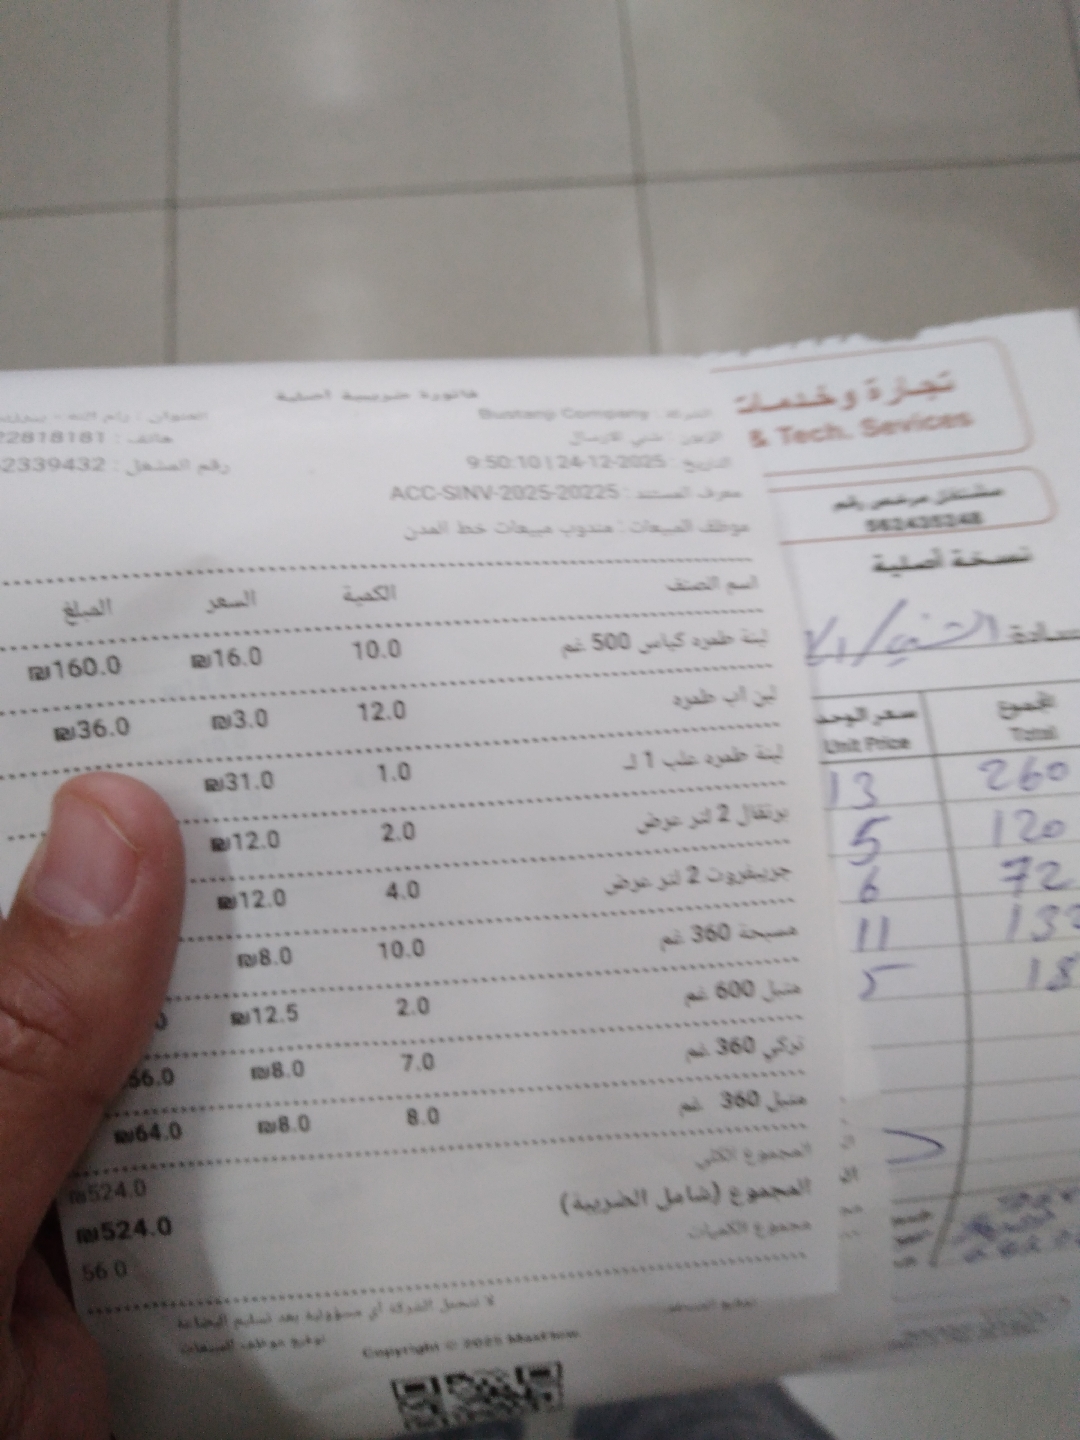 فاتورة ضريبية اصلية
الشركة : Bustanji Company
العنوان : رام الله -
هاتف : 22818181
التاريخ : 24-12-2025 | 9:50:10
رقم المشغل : 2339432
معرف المستند : ACC-SINV-2025-20225
موظف المبيعات : مندوب مبيعات خط المدن
اسم الصنف الكمية السعر المبلغ
لبنة طمره كياس 500 غم 10.0 ₪16.0 ₪160.0
لبن اب طمره 12.0 ₪3.0 ₪36.0
لبنة طمره علب 1 لـ 1.0 ₪31.0
برتقال 2 لتر عرض 2.0 ₪12.0
جريبفروت 2 لتر عرض 4.0 ₪12.0
مسبحة 360 غم 10.0 ₪8.0
متبل 600 غم 2.0 ₪12.5
تركي 360 غم 7.0 ₪8.0 56.0
متبل 360 غم 8.0 ₪8.0 ₪64.0
المجموع الكلي ₪524.0
المجموع (شامل الضريبة) ₪524.0
مجموع الكميات 56.0
لا تتحمل الشركة أي مسؤولية بعد تسليم البضاعة
توقيع موظف المبيعات
Copyright © 2025
تجارة وخدمات
& Tech. Sevices
مشتغل مرخص رقم
562435248
نسخة أصلية
المجموع
Total
Unit Price
13 260
5 120
6 72
11 132
5 18